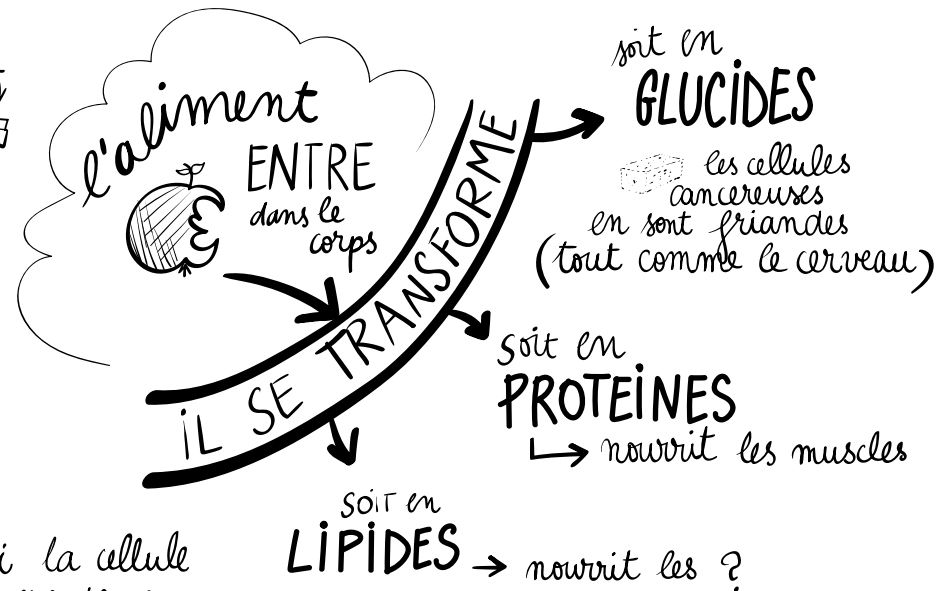 l'aliment
ENTRE
dans le
corps
IL SE TRANSFORME
soit en
GLUCIDES
les cellules
cancereuses
en sont friandes
(tout comme le cerveau)
soit en
PROTEINES
nourrit les muscles
SOIT en
LIPIDES
nourrit les ?
la cellule